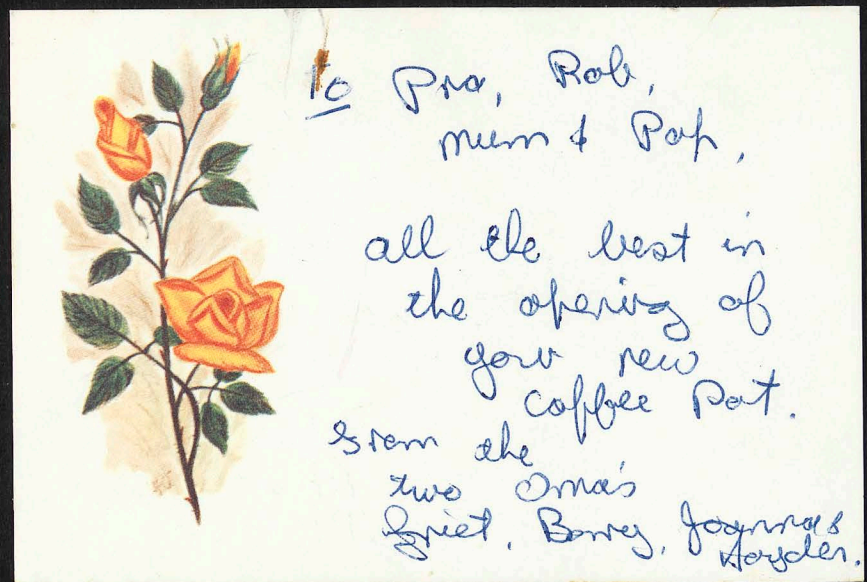 To Pra, Rob,
Mum & Pop,
all the best in
the opening of
your new
Coffee Pot.
From the
two Oma's
Griet, Barry, Joanna &
Hayden.